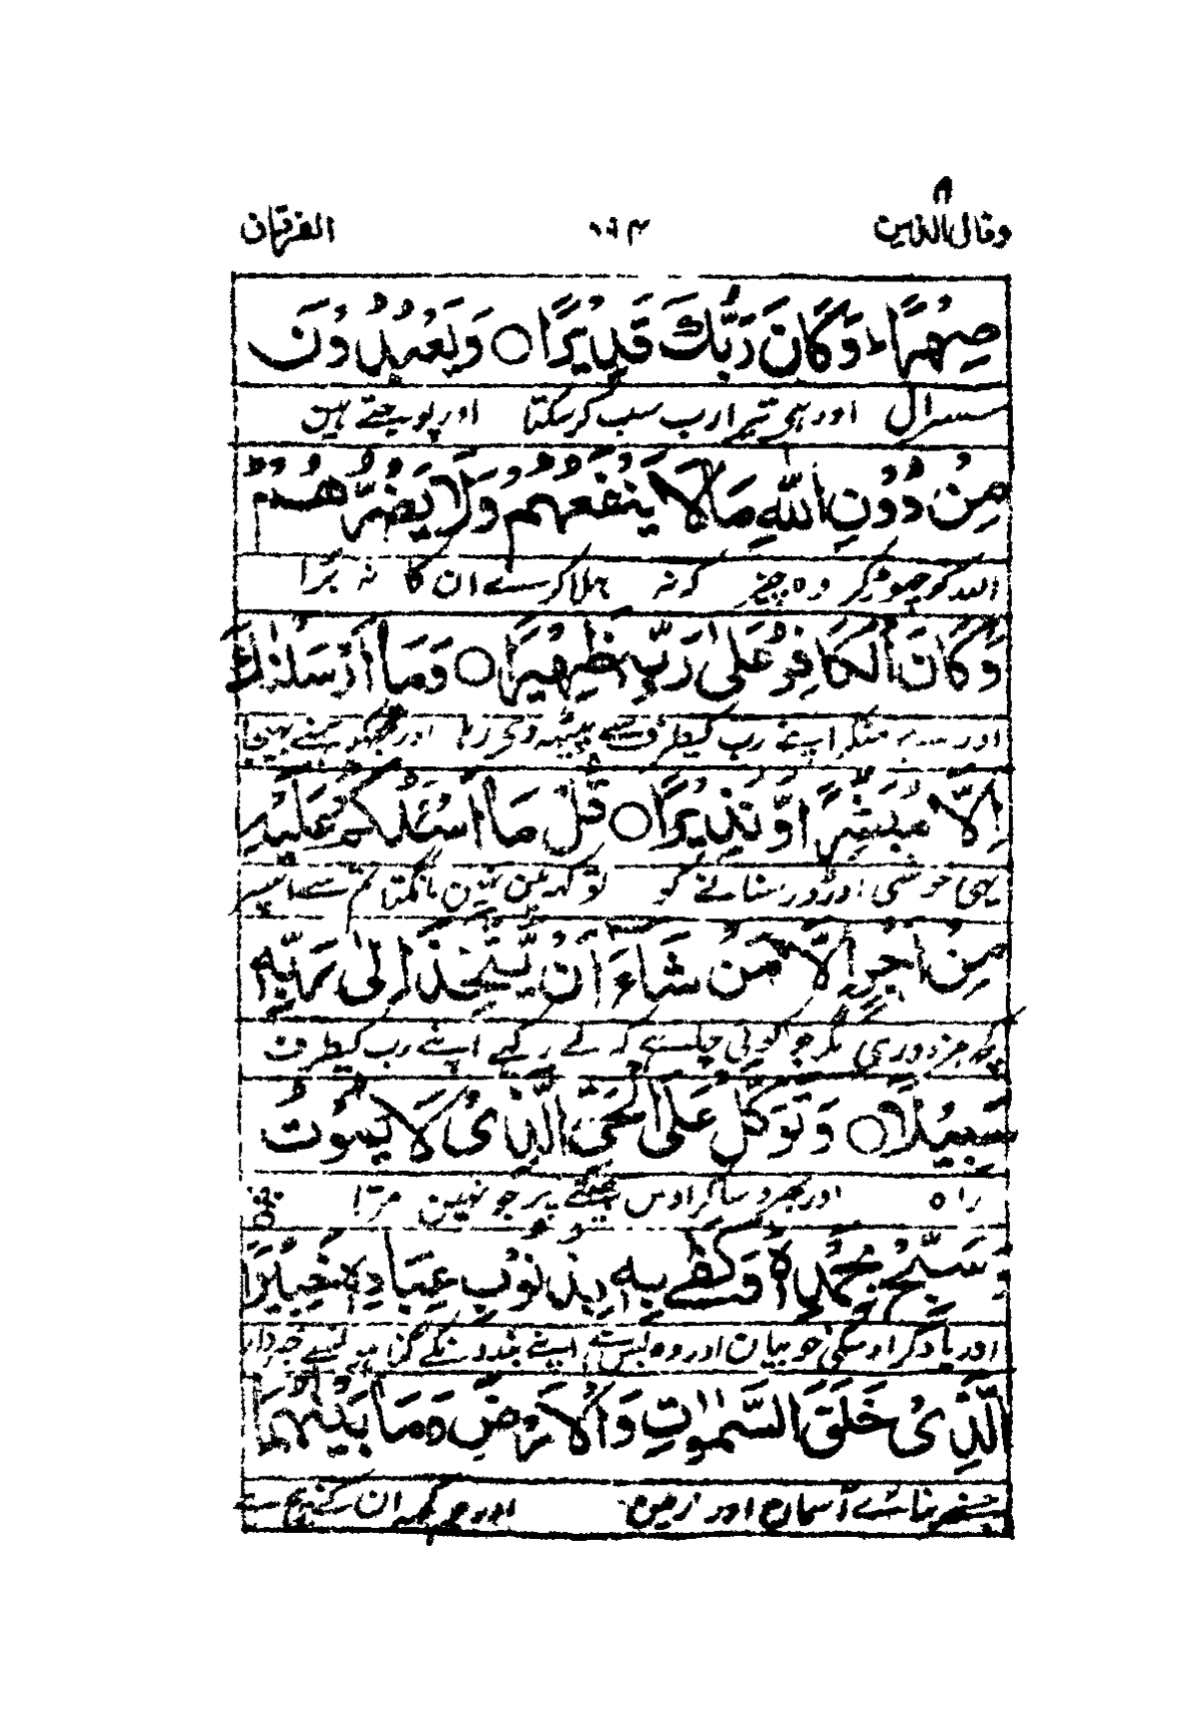 وقال الذین ۱۹ ۱۶۴ الفرقان
صِهْرًا ؕ وَكَانَ رَبُّكَ قَدِیْرًا ○ وَیَعْبُدُوْنَ
سسرال اور ہی تیرا رب سب کرسکتا اور پوجتے ہین
مِنْ دُوْنِ اللّٰهِ مَا لَا یَنْفَعُهُمْ وَلَا یَضُرُّهُمْ ؕ
اللہ کو چھوڑکر وہ چیز کہ نہ بھلا کرے ان کا نہ بُرا
وَكَانَ الْكَافِرُ عَلٰی رَبِّهٖ ظَهِیْرًا ○ وَمَا اَرْسَلْنٰكَ
اور ہے منکر اپنے رب کیطرف سے پیٹھہ دی رہا اور تجکو ہمنے بھیجا
اِلَّا مُبَشِّرًا وَّنَذِیْرًا ○ قُلْ مَا اَسْئَلُكُمْ عَلَیْهِ
یہی خوشی اور ڈر سنانے کو تو کہہ مین نہین مانگتا تم سے اسپر
مِنْ اَجْرٍ اِلَّا مَنْ شَآءَ اَنْ یَّتَّخِذَ اِلٰی رَبِّهٖ
کچھ مزدوری مگر جو کوئی چاہے کہ لے رکہے اپنے رب کیطرف
سَبِیْلًا ○ وَتَوَكَّلْ عَلَی الْحَیِّ الَّذِیْ لَا یَمُوْتُ
راہ اور بھروسا کر اوس جیتے پر جو نہین مرتا
وَسَبِّحْ بِحَمْدِهٖ ؕ وَكَفٰی بِهٖ بِذُنُوْبِ عِبَادِهٖ خَبِیْرًا
اور یاد کر اوسکی خوبیان اور وہ بس ہے اپنے بندونکے گناہونسے خبردار
الَّذِیْ خَلَقَ السَّمٰوٰتِ وَالْاَرْضَ وَمَا بَیْنَهُمَا
جسنے بنائے آسمان اور زمین اور جو کچھہ ان کے بیچ ہے